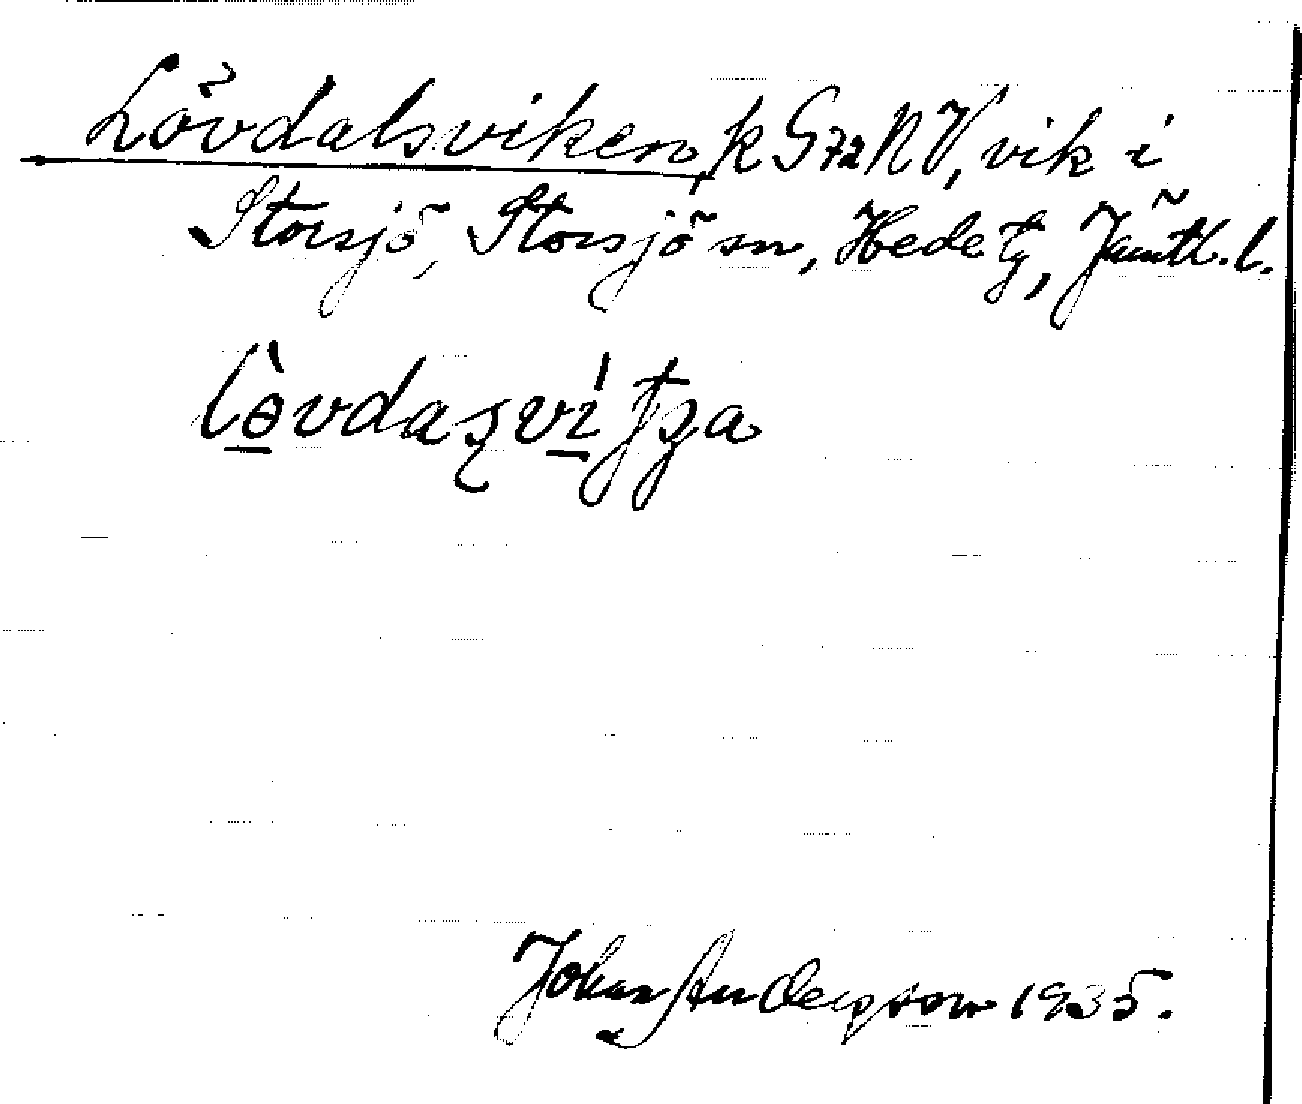 Lövdalsviken, k G72NV, vik i
Storsjö, Storsjö sn, Hede tg, Jämtl. l.
Johan Andersson 1935.